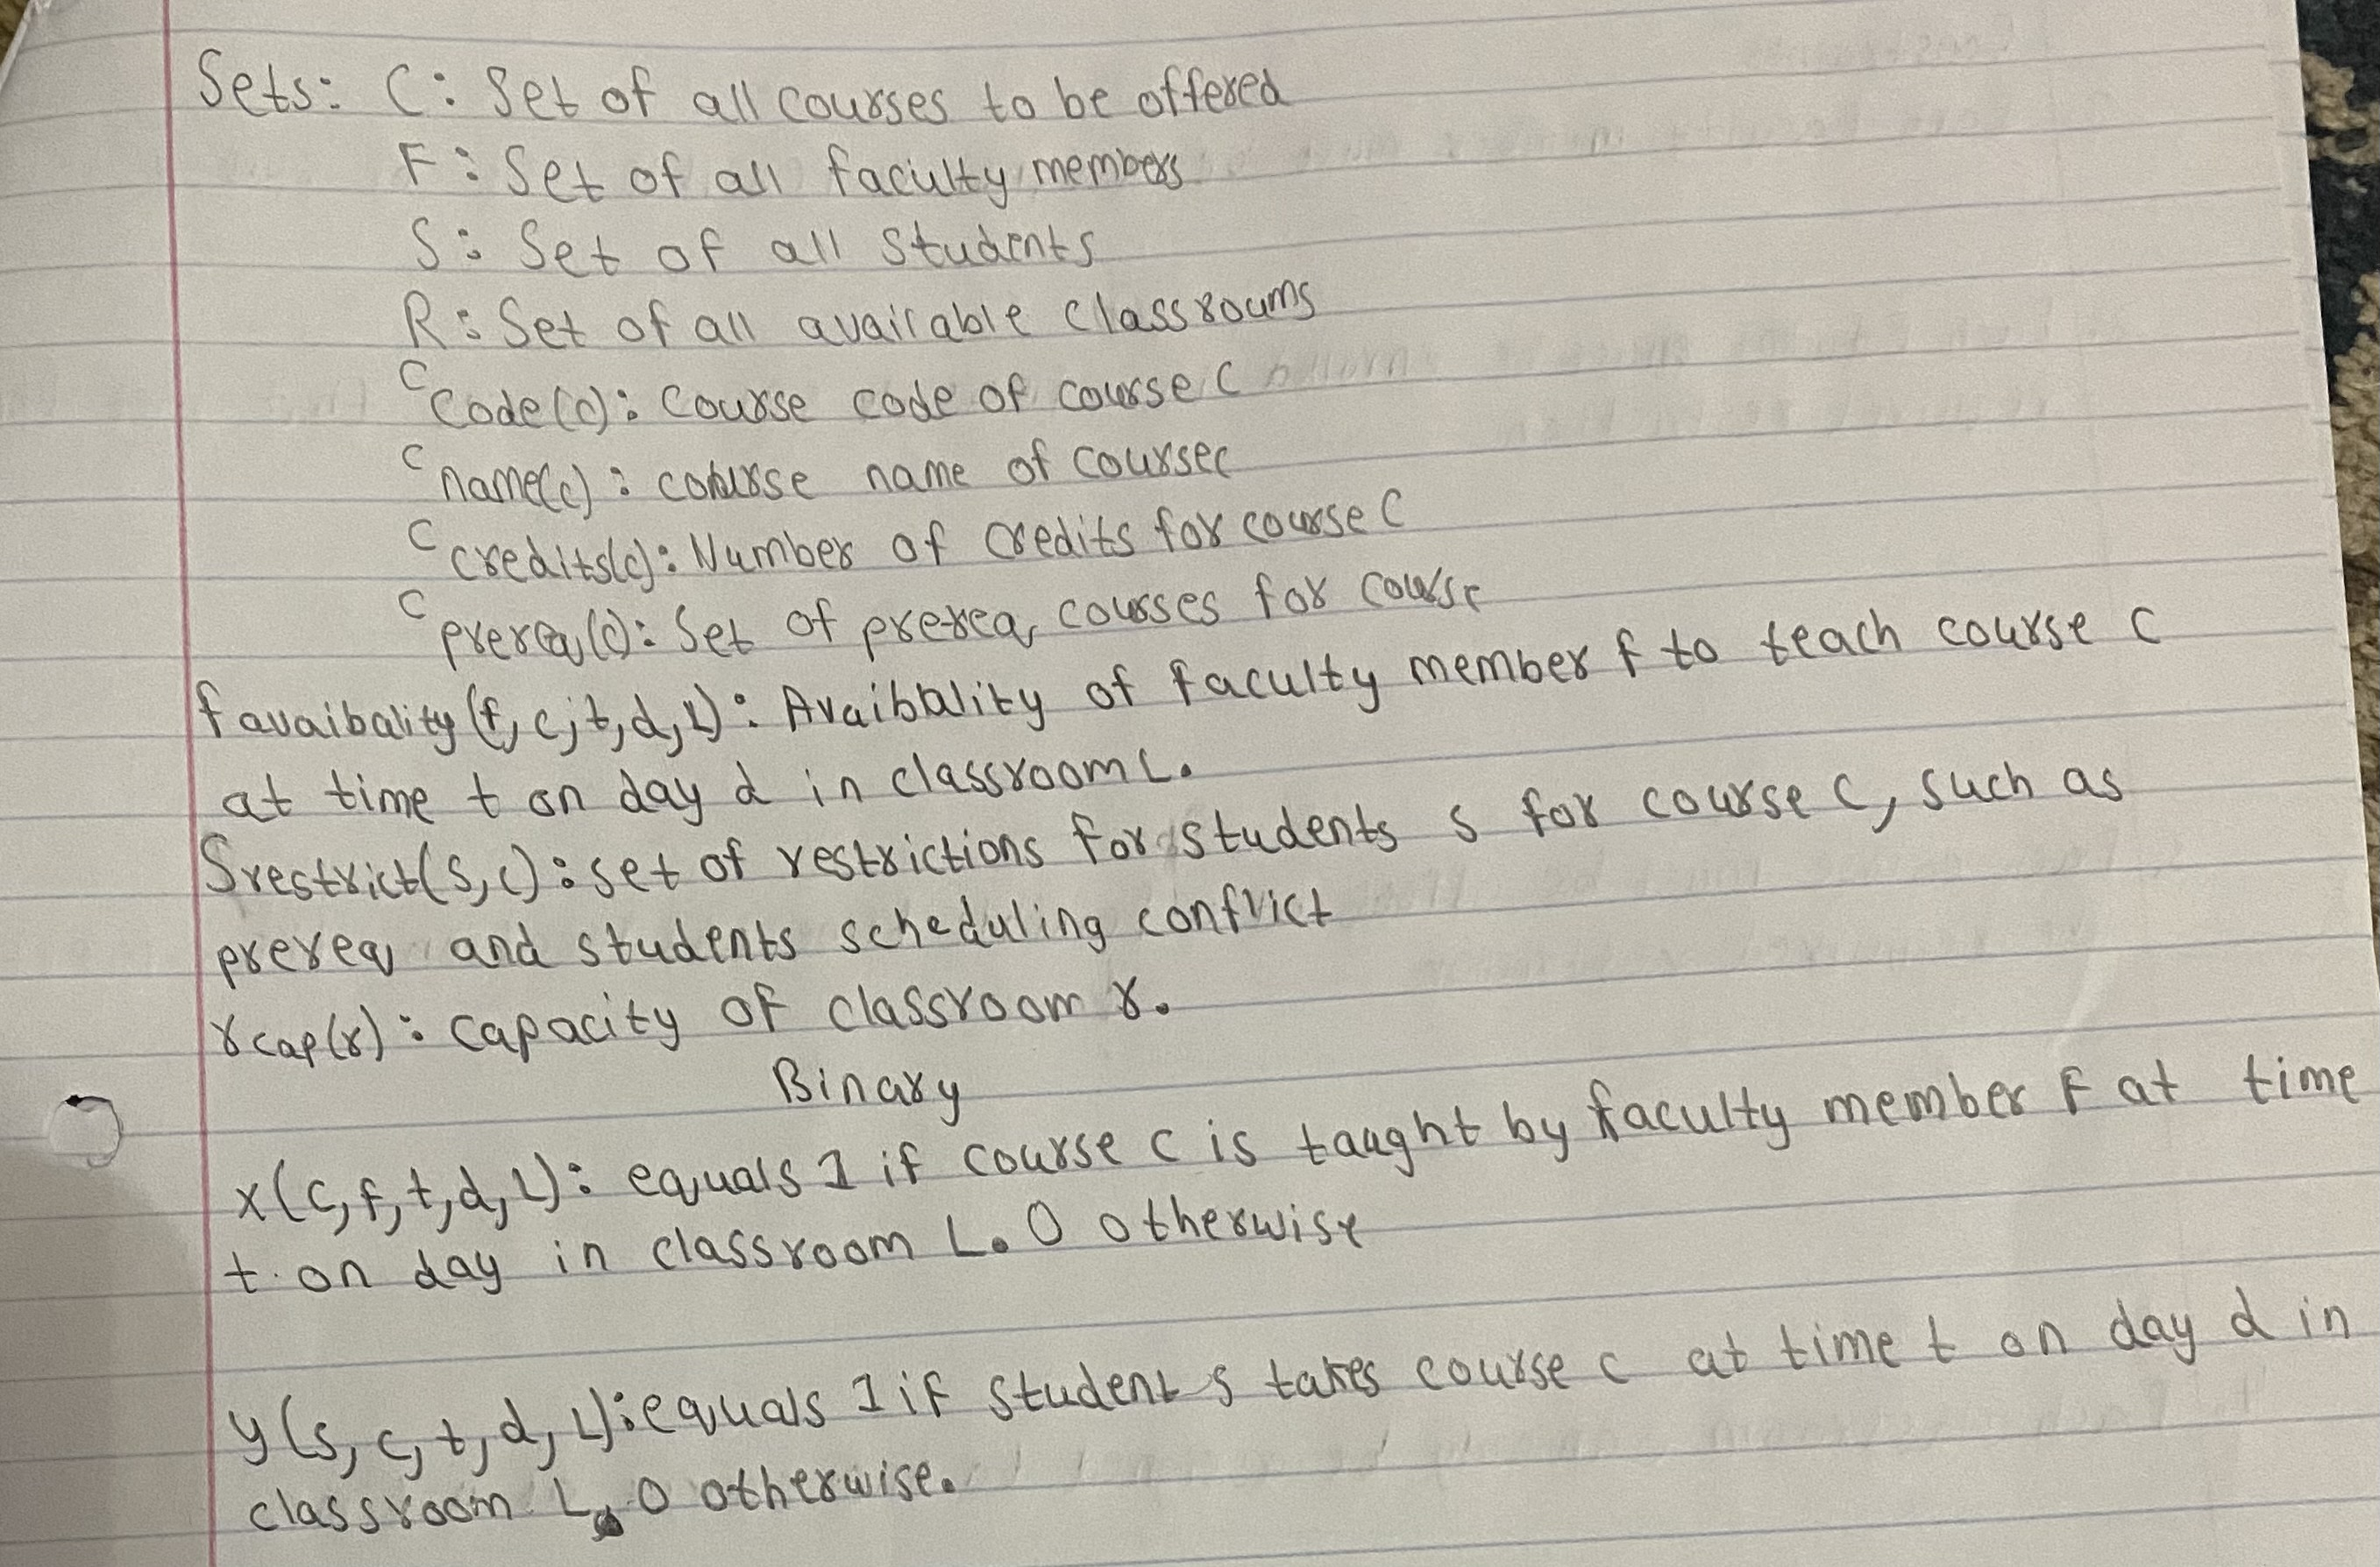 Sets: C: Set of all courses to be offered
F: Set of all faculty members
S: Set of all students
R: Set of all available classrooms
C code(c): Course code of course C
C name(c): course name of course c
C credits(c): Number of credits for course C
C prereq(c): Set of prereq courses for course
f avaibality (f, c, t, d, L): Avaibality of faculty member f to teach course C
at time t on day d in classroom L.
Srestrict(s, c): set of restrictions for students s for course C, such as
prereq and students scheduling conflict
rcap(r): capacity of classroom r.
Binary
x(c, f, t, d, L): equals 1 if course c is taught by faculty member F at time
t on day in classroom L. 0 otherwise
y(s, c, t, d, L): equals 1 if student s takes course c at time t on day d in
classroom L, 0 otherwise.